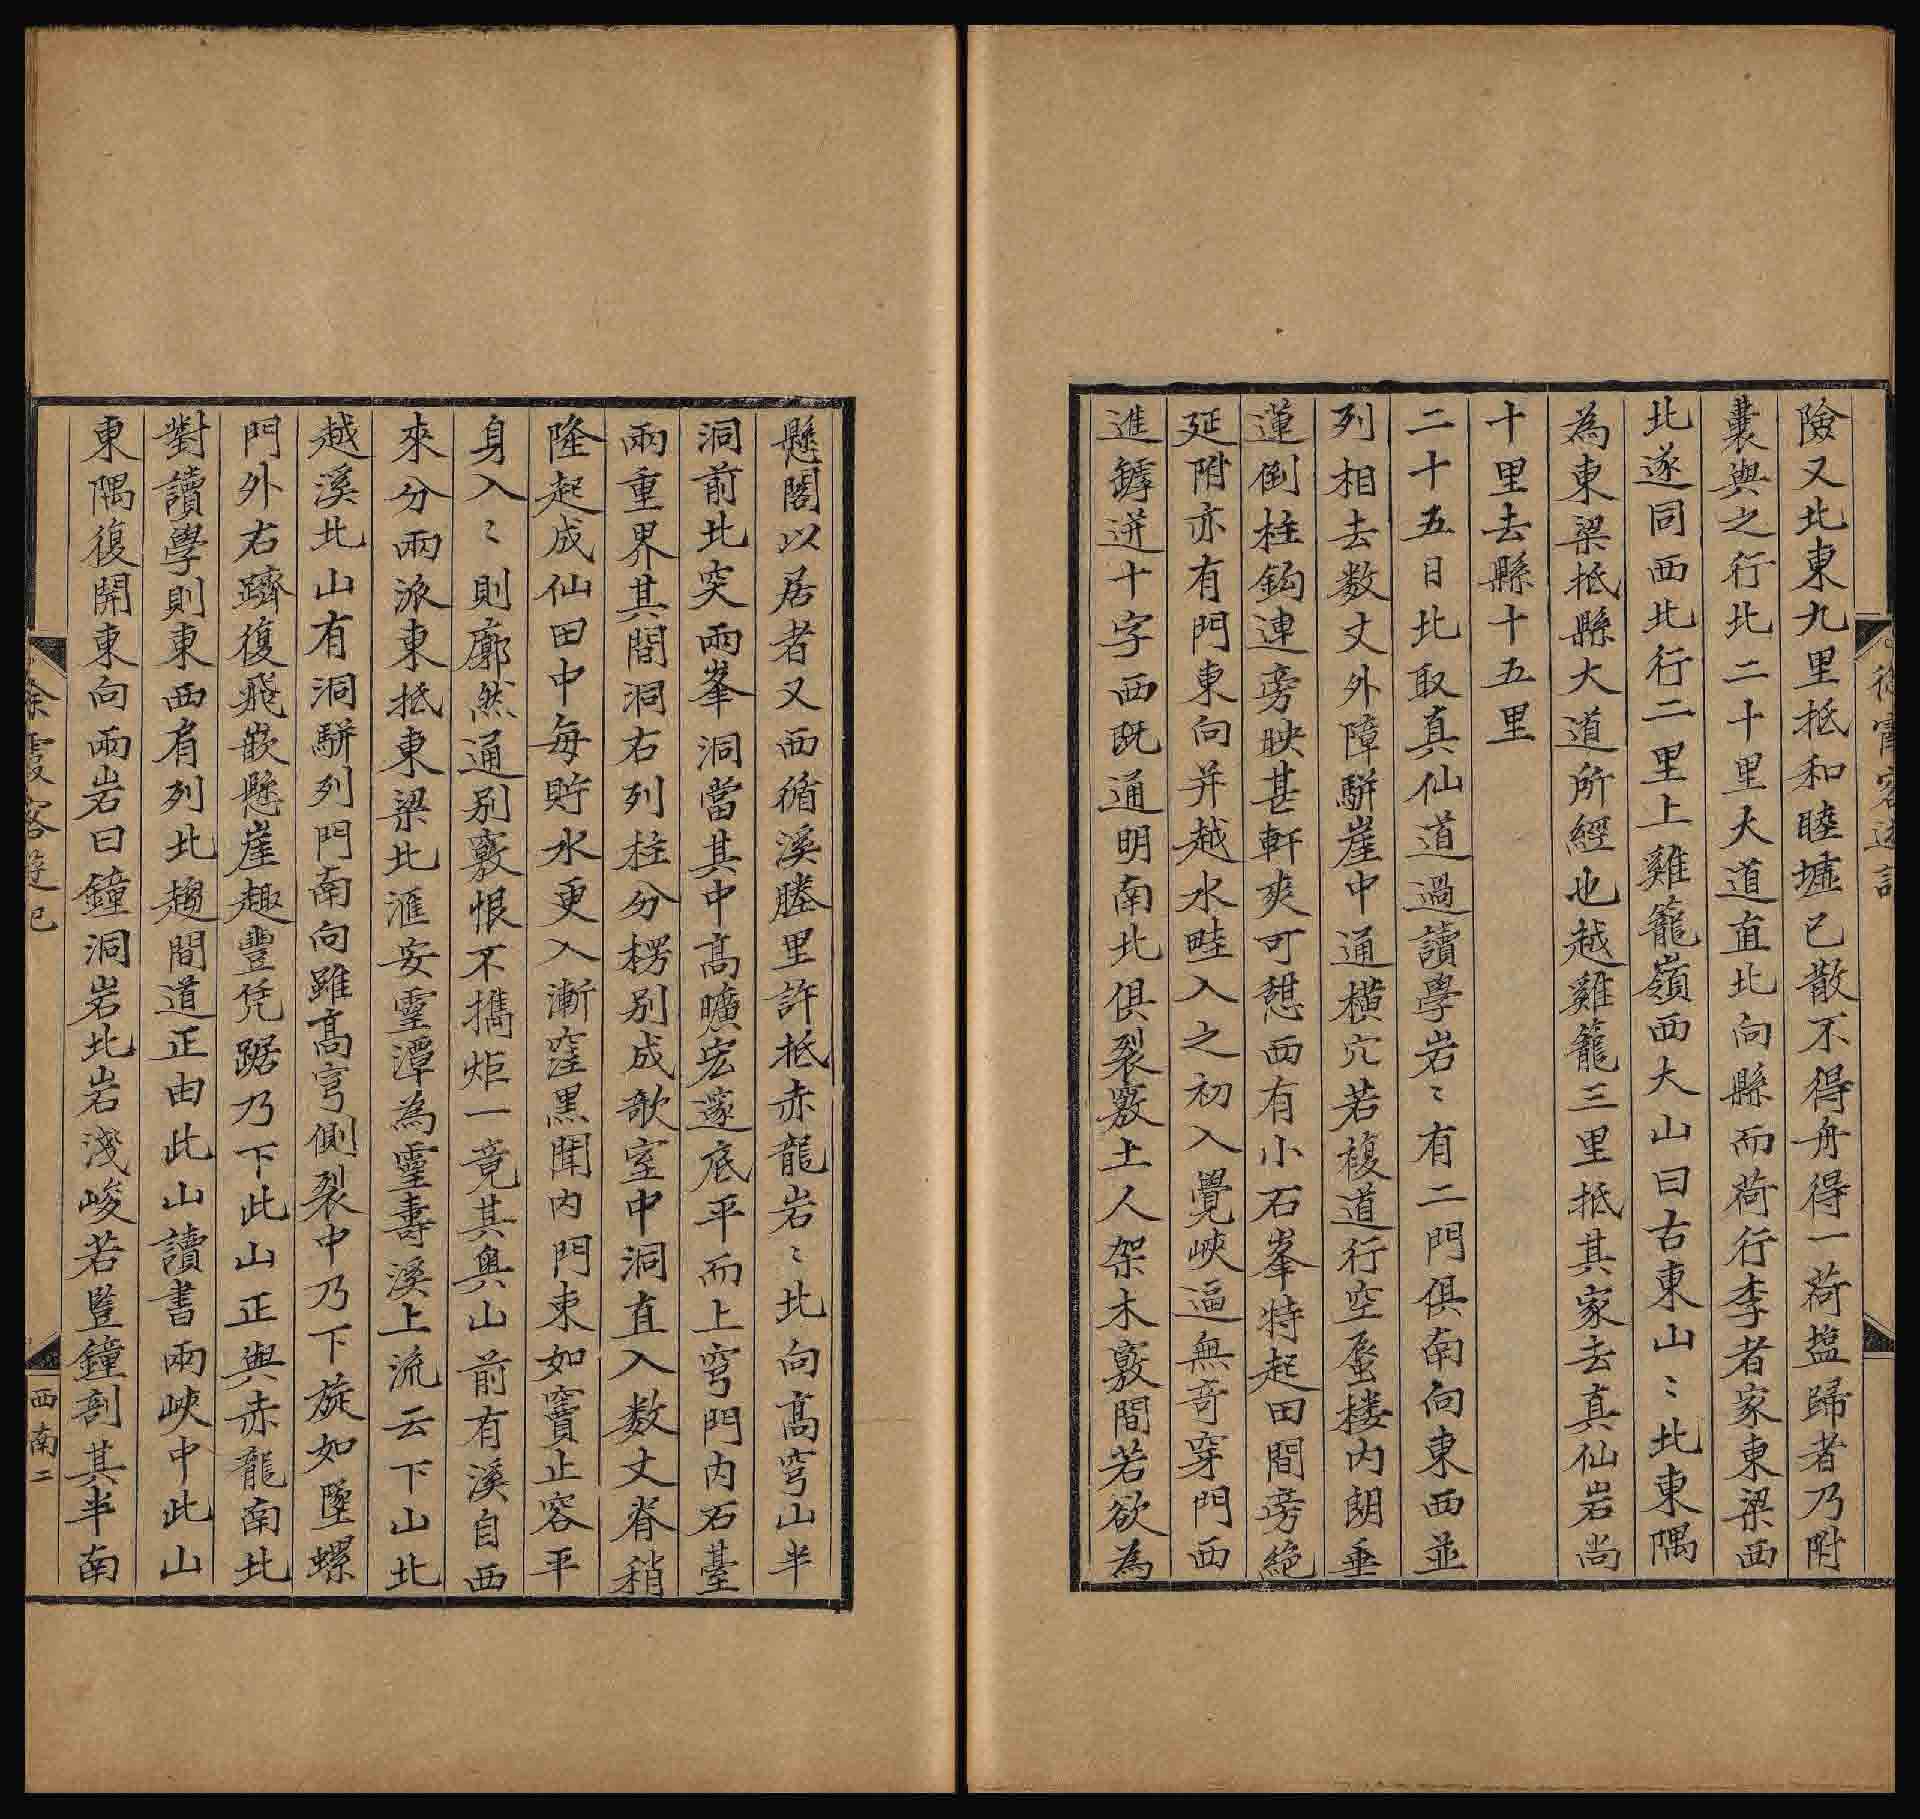 險又北東九里抵和睦墟已散不得舟得一荷塩歸者乃附
囊與之行北二十里大道直北向縣而荷行李者家東梁西
北遂同西北行二里上雞籠嶺西大山曰古東山〻北東隅
為東梁抵縣大道所經也越雞籠三里抵其家去真仙岩尚
十里去縣十五里
二十五日北取真仙道過讀學岩〻有二門俱南向東西並
列相去数丈外障駢崖中通橫穴若複道行空蜃楼内朗垂
蓮倒柱鈎連旁映甚軒爽可憩西有小石峯特起田間旁絶
延附亦有門東向并越水畦入之初入覺峽逼無奇穿門西
進罅迸十字西既通明南北俱裂竅土人架木竅間若欲為
懸閣以居者又西循溪塍里許抵赤龍岩〻北向高穹山半
洞前北突兩峯洞當其中高曠宏邃底平而上穹門内石臺
兩重界其間洞右列柱分楞别成欹室中洞直入数丈脊稍
隆起成仙田中每貯水更入漸窪黑聞内門束如竇止容平
身入〻則廓然通别竅恨不攜炬一竟其奥山前有溪自西
來分兩派東抵東梁北滙安靈潭為靈壽溪上流云下山北
越溪北山有洞駢列門南向雖高穹側裂中乃下旋如墜螺
門外右躋復飛嵌懸崖趣豐凭踞乃下此山正與赤龍南北
對讀學則東西肩列北趨間道正由此山讀書兩峽中此山
東隅復開東向兩岩曰鐘洞岩北岩淺峻若豎鐘剖其半南
徐霞客遊記
西南二